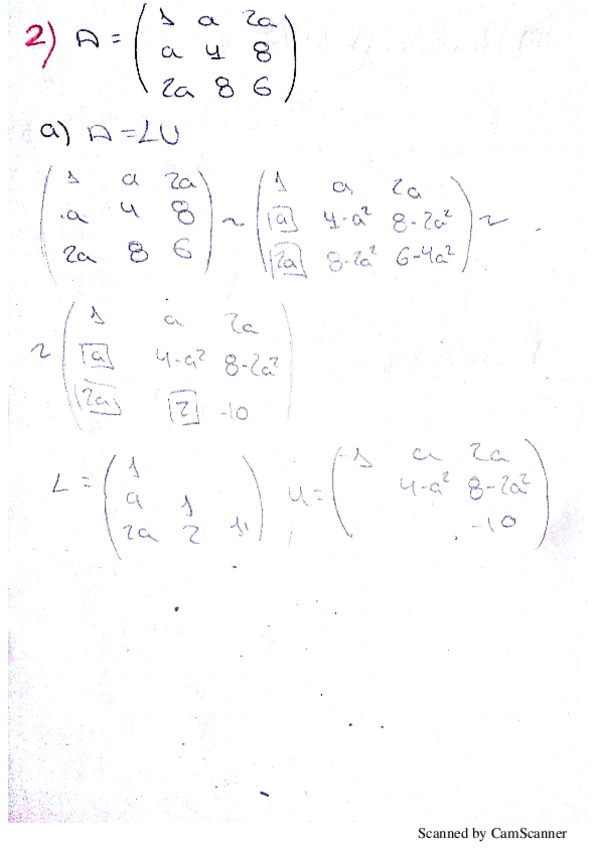 2) A = ( 1 a 2a
a 4 8
2a 8 6 )
a) A = LU
( 1 a 2a ( 1 a 2a
a 4 8 ~ a 4-a² 8-2a² ~
2a 8 6 ) 2a 8-2a² 6-4a² )
~ ( 1 a 2a
a 4-a² 8-2a²
2a 2 -10 )
L = ( 1 U = ( 1 a 2a
a 1 4-a² 8-2a²
2a 2 1 ) -10 )
Scanned by CamScanner